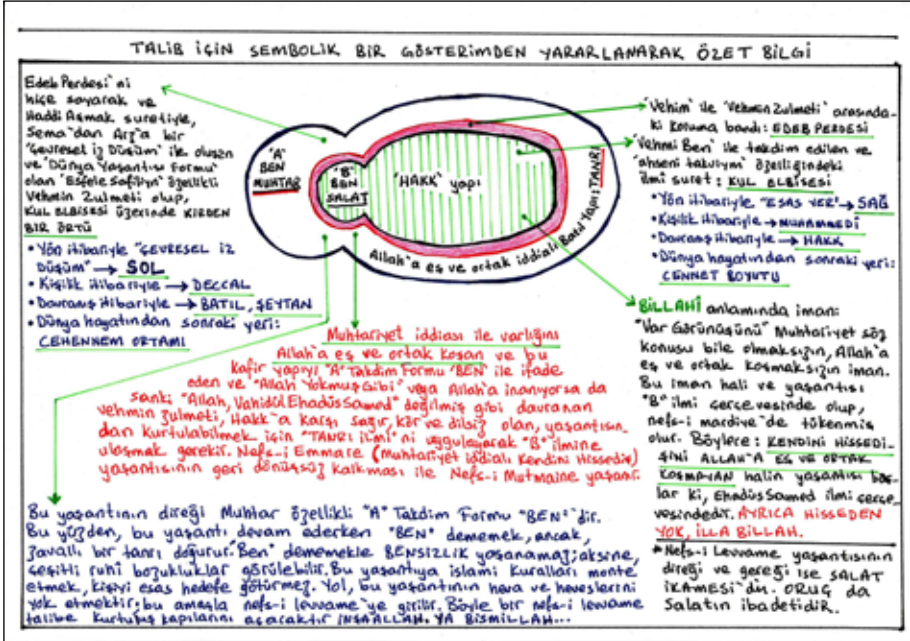 TALİB İÇİN SEMBOLİK BİR GÖSTERİMDEN YARARLANARAK ÖZET BİLGİ
Edeb Perdesi'ni
hiçe sayarak ve
Haddi Aşmak suretiyle,
Sema'dan Arz'a bir
"Çevresel iz Düşüm" ile oluşan
ve "Dünya Yaşantısı Formu"
olan "Esfele Safiliyn" özellikli
Vehmin Zulmeti olup,
KUL ELBİSESİ üzerinde KİRDEN
BİR ÖRTÜ
• Yön itibariyle "ÇEVRESEL İZ
DÜŞÜM" → SOL
• Kişilik itibariyle → DECCAL
• Davranış itibariyle → BATIL, ŞEYTAN
• Dünya hayatından sonraki yeri:
CEHENNEM ORTAMI
"A"
BEN
MUHTAR
"B"
BEN
SALAT
"HAKK" yapı
Allah'a eş ve ortak iddialı Batıl Yapı: TANRI
"Vehim" ile "Vehmin Zulmeti" arasında-
ki koruma bandı: EDEB PERDESİ
"Vehmi Ben" ile takdim edilen ve
"ahseni takviym" özelliğindeki
ilmi suret: KUL ELBİSESİ
• Yön itibariyle "ESAS YER" → SAĞ
• Kişilik itibariyle → MUHAMMEDİ
• Davranış itibariyle → HAKK
• Dünya hayatından sonraki yeri:
CENNET BOYUTU
BİLLAHİ anlamında iman:
"Var Görünüşünü" Muhtariyet söz
konusu bile olmaksızın, Allah'a
eş ve ortak koşmaksızın iman.
Bu iman hali ve yaşantısı
"B" ilmi çerçevesinde olup,
nefs-i mardiye'de tükenmiş
olur. Böylece: KENDİNİ HİSSEDİ-
ŞİNİ ALLAH'A EŞ VE ORTAK
KOŞMAYAN halin yaşantısı baş-
lar ki, EhadüsSamed ilmi çerçe-
vesindedir. AYRICA HİSSEDEN
YOK, İLLA BİLLAH.
* Nefs-i Levvame yaşantısının
direği ve gereği ise SALAT
İKAMESİ'dir. ORUÇ da
Salatın ibadetidir.
Muhtariyet iddiası ile varlığını
Allah'a eş ve ortak koşan ve bu
kafir yapıyı "A" Takdim Formu "BEN" ile ifade
eden ve "Allah Yokmuş Gibi" veya Allah'a inanıyorsa da
sanki "Allah, Vahidül EhadüsSamed" değilmiş gibi davranan
vehmin zulmeti, Hakk'a karşı sağır, kör ve dilsiz olan, yaşantısın-
dan Kurtulabilmek için "TANRI İLMİ"ni uygulayarak "B" ilmine
ulaşmak gerekir. Nefs-i Emmare (Muhtariyet iddialı Kendini Hissediş)
yaşantısının geri dönüşsüz kalkması ile Nefs-i Mutmaine yaşanır.
Bu yaşantının direği Muhtar özellikli "A" Takdim Formu "BEN"dir.
Bu yüzden, bu yaşantı devam ederken "BEN" dememek, ancak,
zavallı bir tanrı doğurur. "Ben" dememekle BENSİZLİK yaşanamaz; aksine,
çeşitli ruhi bozukluklar görülebilir. Bu yaşantıya islami kuralları monte
etmek, kişiyi esas hedefe götürmez. Yol, bu yaşantının heva ve heveslerini
yok etmektir; bu amaçla nefs-i levvame'ye girilir. Böyle bir nefs-i levvame
talibe Kurtuluş kapılarını açacaktır İNŞAALLAH. YA BİSMİLLAH...